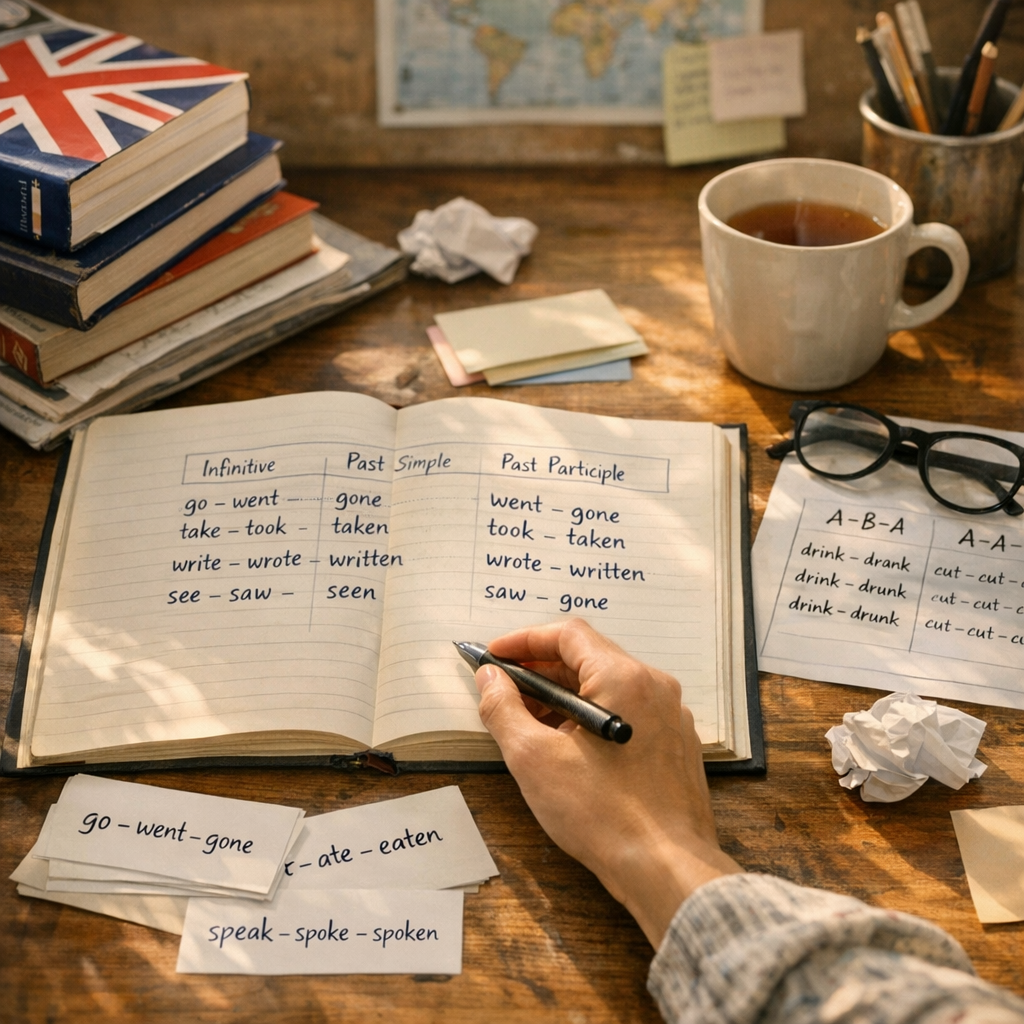 Infinitive Past Simple Past Participle
go – went – gone went – gone
take – took – taken took – taken
write – wrote – written wrote – written
see – saw – seen saw – gone
A-B-A A-A-
drink – drank cut – cut –
drink – drunk cut – cut –
drink – drunk cut – cut –
go – went – gone
– ate – eaten
speak – spoke – spoken